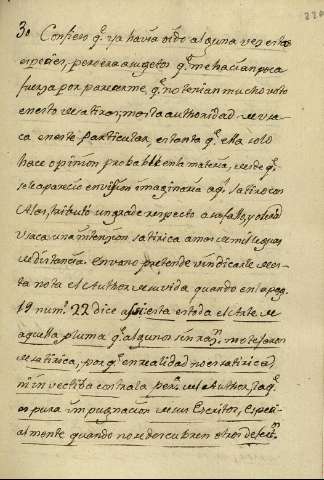 220
30 Confieso q.e ya havía oído alguna vez estas
especies, pero era a sugetos q.e me hacían poca
fuerza por parecerme, q.e no tenían mucho voto
en esto de satiros; mas la authoridad de Vsa-
ca en este particular, es tanta q.e ella solo
hace opinion probable en la materia, desde q.e
se le apareció en visión imaginaria aq.l satiro con
Alas, tributó un grade respecto a su fallo, y
Vsaca una intension satirica a mas de mil leguas
de distancia. En vano pretende vindicarle de es-
ta nota el Author de su vida quando en la pag.
19 num.o 22 dice assi esta entada el Arte de
aquella pluma q.e algunos sin raz.n motejaron
de satirica, por q.e en realidad no es satirica,
ni invectiba contra la pers.a del Author, la q.e
es pura impugnacion de sus Escritos, especi-
almente quando no se descubren otros